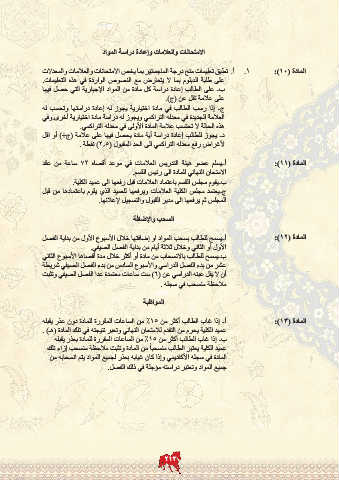 الامتحانات والعلامات وإعادة دراسة المواد
المادة (١٠):
١. أ. تطبق تعليمات منح درجة الماجستير بما يخص الامتحانات والعلامات والمعدلات
على طلبة الدبلوم بما لا يتعارض مع النصوص الواردة في هذه التعليمات.
ب- على الطالب إعادة دراسة كل مادة من المواد الإجبارية التي حصل فيها
على علامة تقل عن (ج).
ج- إذا رسب الطالب في مادة اختيارية يجوز له إعادة دراستها وتحسب له
العلامة الجديدة في معدله التراكمي ويجوز له دراسة مادة اختيارية أخرى وفي
هذه الحالة لا تحتسب علامة المادة الأولى في معدله التراكمي.
د- يجوز للطالب إعادة دراسة أية مادة يحصل فيها على علامة (ج+) أو أقل
لأغراض رفع معدله التراكمي الى الحد المقبول (٢,٥) نقطة.
المادة (١١):
أ-يسلم عضو هيئة التدريس العلامات في موعد أقصاه ٧٢ ساعة من عقد
الامتحان النهائي للمادة الى رئيس القسم.
ب-يقوم مجلس القسم باعتماد العلامات قبل رفعها الى عميد الكلية.
ج-يعتمد مجلس الكلية العلامات ويرفعها للعميد الذي يقوم باعتمادها من قبل
المجلس ثم يرفعها الى مدير القبول والتسجيل لإعلانها.
السحب والإضافة
المادة (١٢):
أ-يسمح للطالب بسحب المواد او إضافتها خلال الأسبوع الأول من بداية الفصل
الأول أو الثاني وخلال ثلاثة أيام من بداية الفصل الصيفي.
ب-يسمح للطالب بالانسحاب من مادة أو أكثر خلال مدة أقصاها الأسبوع الثاني
عشر من بدء الفصل الدراسي والأسبوع السادس من بدء الفصل الصيفي شريطة
أن لا يقل عبئه الدراسي عن (٦) ست ساعات معتمدة عدا الفصل الصيفي وتثبت
ملاحظة منسحب في سجله.
المواظبة
المادة (١٣):
أ- إذا غاب الطالب أكثر من ١٥٪ من الساعات المقررة للمادة دون عذر يقبله
عميد الكلية يحرم من التقدم للامتحان النهائي وتعتبر نتيجته في تلك المادة (هـ).
ب- إذا غاب الطالب أكثر من ١٥٪ من الساعات المقررة للمادة بعذر يقبله
عميد الكلية يعتبر الطالب منسحباً من المادة وتثبت ملاحظة منسحب إزاء تلك
المادة في سجله الأكاديمي وإذا كان غيابه بعذر لجميع المواد يتم انسحابه من
جميع المواد وتعتبر دراسته مؤجلة في ذلك الفصل.